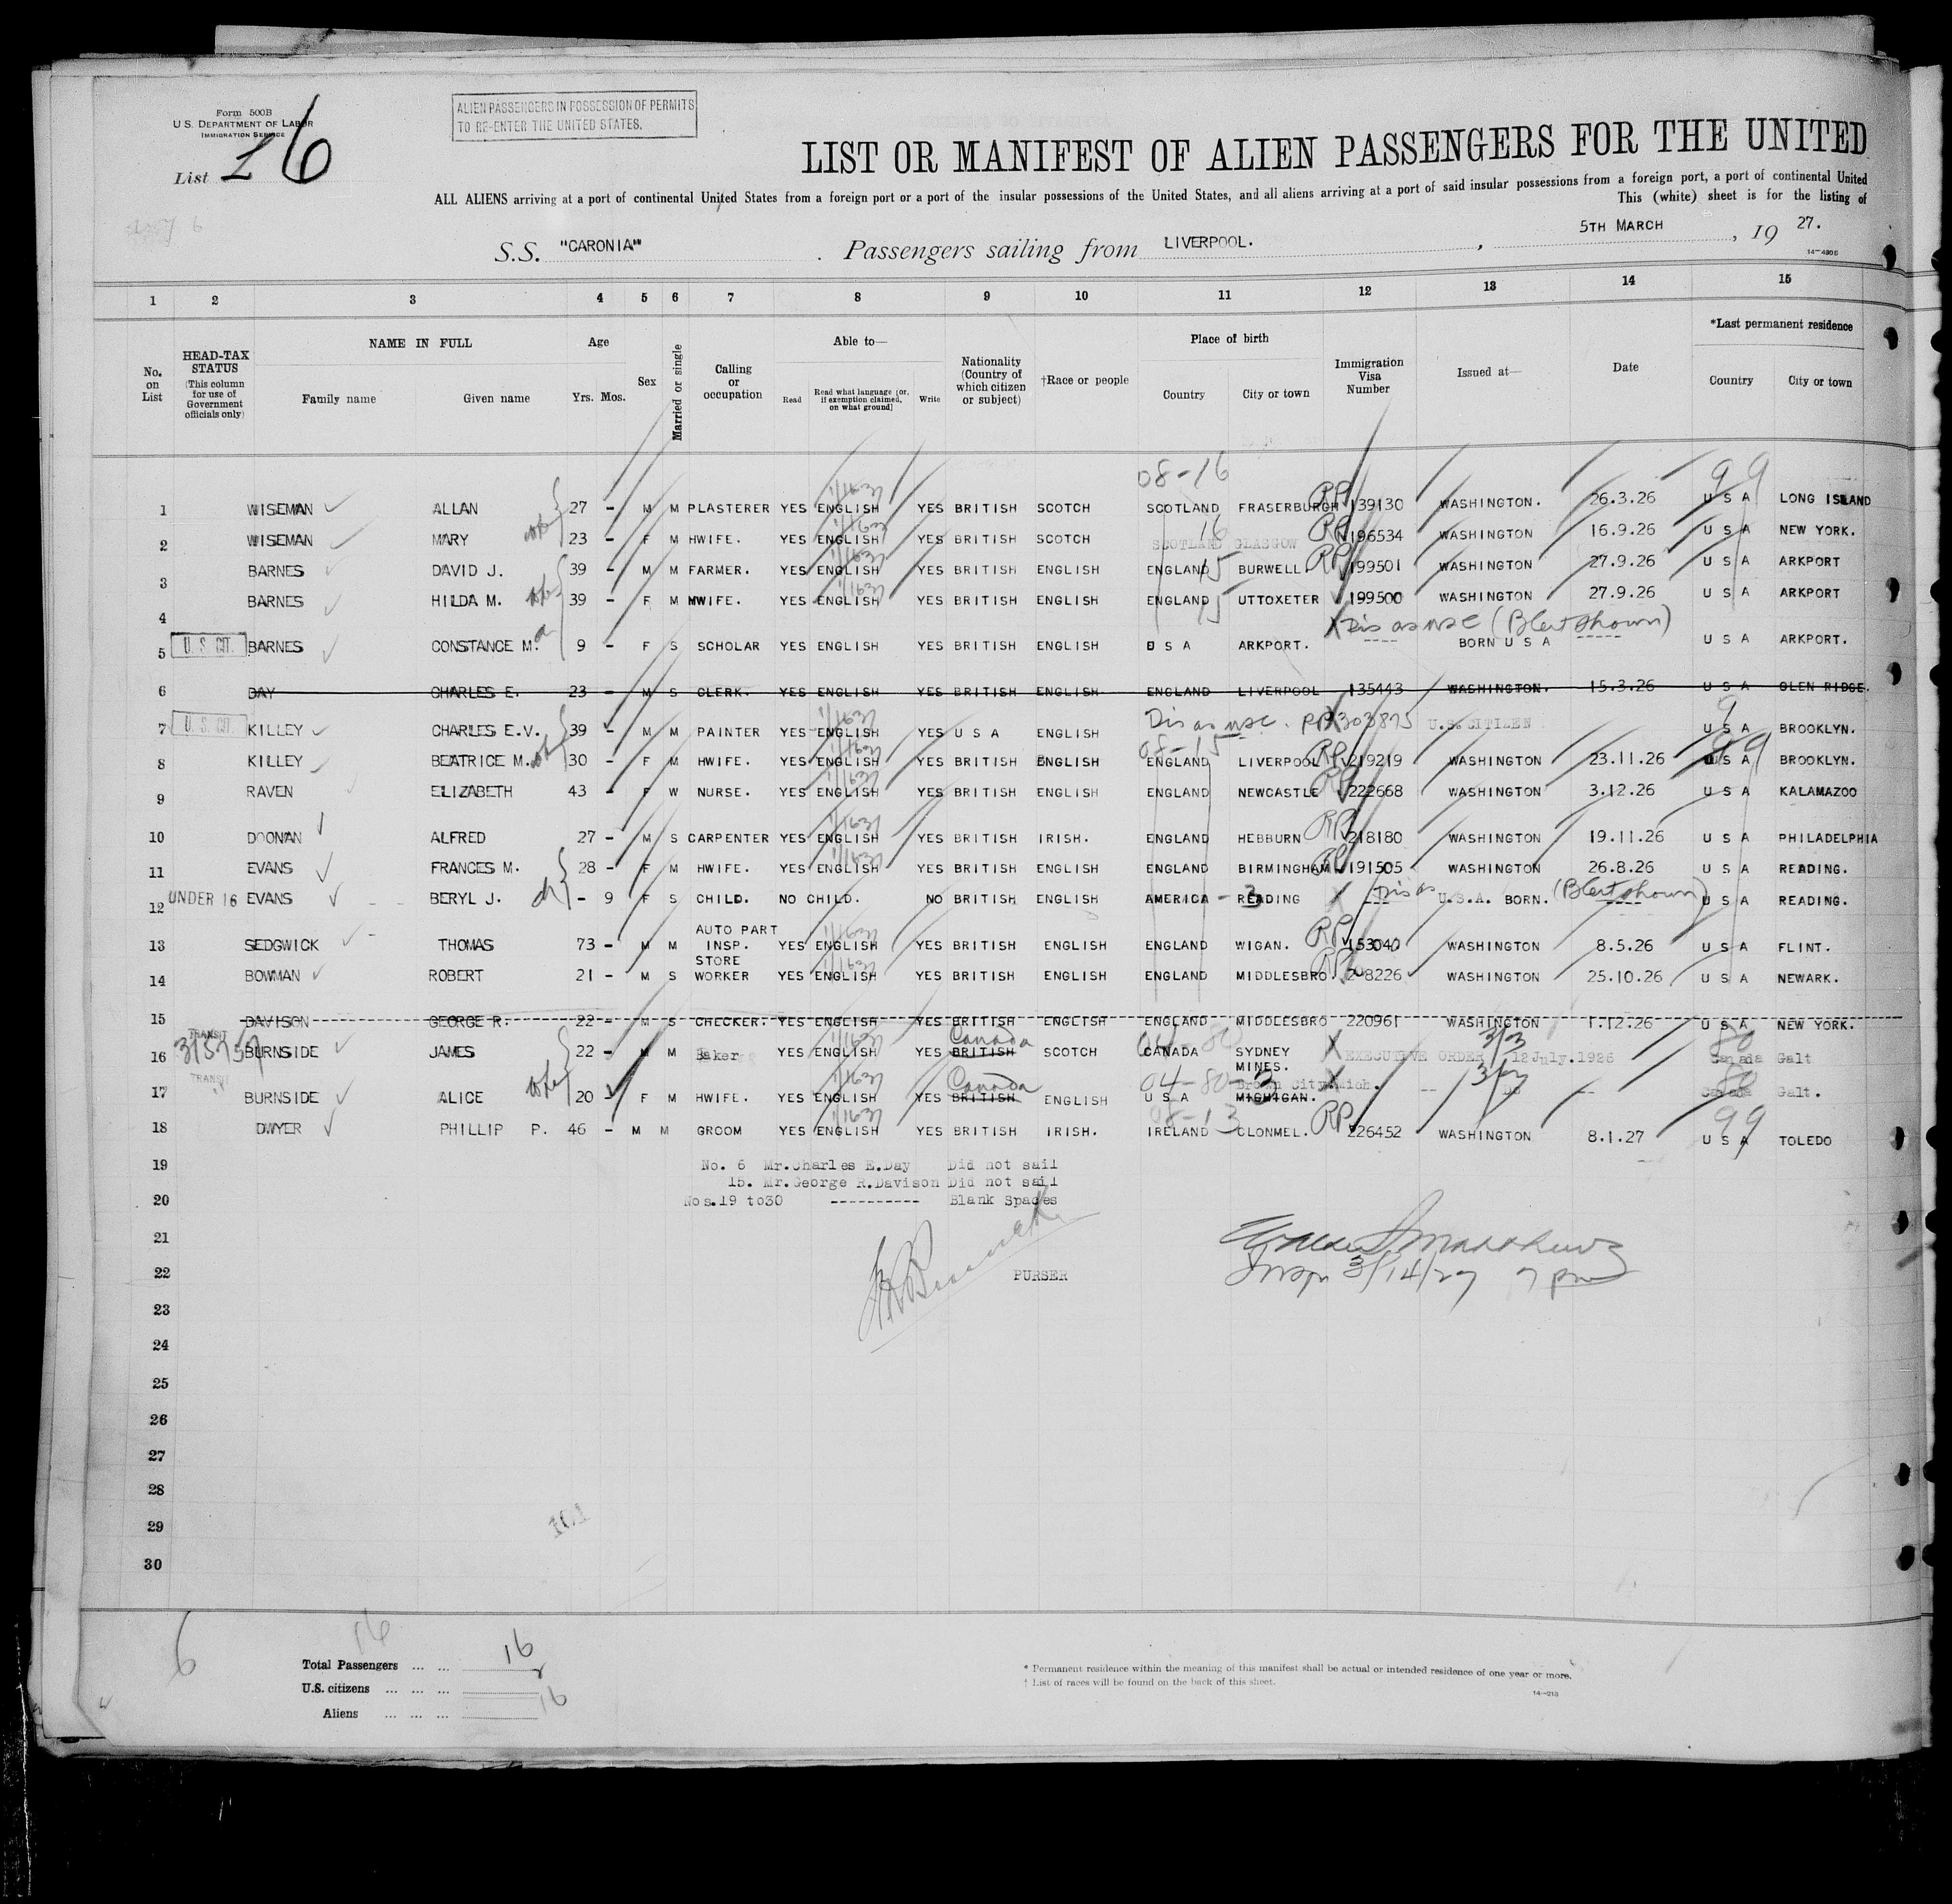 Form 500B
U. S. DEPARTMENT OF LABOR
IMMIGRATION SERVICE
List 26
ALIEN PASSENGERS IN POSSESSION OF PERMITS
TO RE-ENTER THE UNITED STATES.
LIST OR MANIFEST OF ALIEN PASSENGERS FOR THE UNITED
ALL ALIENS arriving at a port of continental United States from a foreign port or a port of the insular possessions of the United States, and all aliens arriving at a port of said insular possessions from a foreign port, a port of continental United
This (white) sheet is for the listing of
S.S. "CARONIA" . Passengers sailing from LIVERPOOL. , 5TH MARCH , 19 27.
14—4896
1 2 3 4 5 6 7 8 9 10 11 12 13 14 15
No. on List
HEAD-TAX STATUS (This column for use of Government officials only)
NAME IN FULL
Family name Given name
Age
Yrs. Mos.
Sex
Married or single
Calling or occupation
Able to—
Read
Read what language [or, if exemption claimed, on what ground]
Write
Nationality (Country of which citizen or subject)
†Race or people
Place of birth
Country City or town
Immigration Visa Number
Issued at—
Date
*Last permanent residence
Country City or town
08-16 99
1 WISEMAN ALLAN 27 - M M PLASTERER YES ENGLISH YES BRITISH SCOTCH SCOTLAND FRASERBURGH RP 139130 WASHINGTON. 26.3.26 U S A LONG ISLAND
2 WISEMAN MARY wife 23 - F M HWIFE. YES ENGLISH YES BRITISH SCOTCH SCOTLAND 16 GLASGOW RP 196534 WASHINGTON 16.9.26 U S A NEW YORK.
3 BARNES DAVID J. 39 - M M FARMER. YES ENGLISH YES BRITISH ENGLISH ENGLAND 15 BURWELL. RP 199501 WASHINGTON 27.9.26 U S A ARKPORT
4 BARNES HILDA M. wife 39 - F M HWIFE. YES ENGLISH YES BRITISH ENGLISH ENGLAND 15 UTTOXETER 199500 WASHINGTON 27.9.26 U S A ARKPORT
X Dis as USC (B Cert shown)
5 U. S. CIT. BARNES CONSTANCE M. 9 - F S SCHOLAR YES ENGLISH YES BRITISH ENGLISH U S A ARKPORT. ---- BORN U S A ----- U S A ARKPORT.
6 DAY CHARLES E. 23 - M S CLERK. YES ENGLISH YES BRITISH ENGLISH ENGLAND LIVERPOOL 135443 WASHINGTON. 15.3.26 U S A GLEN RIDGE.
7 U. S. CIT. KILLEY CHARLES E.V. 39 - M M PAINTER YES ENGLISH YES U S A ENGLISH Dis as usc. PP 303875 U.S.CITIZEN U S A BROOKLYN.
08-15 99
8 KILLEY BEATRICE M. wife 30 - F M HWIFE. YES ENGLISH YES BRITISH ENGLISH ENGLAND LIVERPOOL RP 219219 WASHINGTON 23.11.26 U S A BROOKLYN.
9 RAVEN ELIZABETH 43 - F W NURSE. YES ENGLISH YES BRITISH ENGLISH ENGLAND NEWCASTLE RP 222668 WASHINGTON 3.12.26 U S A KALAMAZOO
10 DOONAN ALFRED 27 - M S CARPENTER YES ENGLISH YES BRITISH IRISH. ENGLAND HEBBURN RP 218180 WASHINGTON 19.11.26 U S A PHILADELPHIA
11 EVANS FRANCES M. 28 - F M HWIFE. YES ENGLISH YES BRITISH ENGLISH ENGLAND BIRMINGHAM RP 191505 WASHINGTON 26.8.26 U S A READING.
12 UNDER 16 EVANS BERYL J. ch - 9 F S CHILD. NO CHILD. NO BRITISH ENGLISH AMERICA - 3 READING X Dis as U.S.A. BORN. (B Cert shown) U S A READING.
13 SEDGWICK THOMAS 73 - M M AUTO PART INSP. YES ENGLISH YES BRITISH ENGLISH ENGLAND WIGAN. RP 153040 WASHINGTON 8.5.26 U S A FLINT.
14 BOWMAN ROBERT 21 - M S STORE WORKER YES ENGLISH YES BRITISH ENGLISH ENGLAND MIDDLESBRO. RP 208226 WASHINGTON 25.10.26 U S A NEWARK.
15 DAVISON GEORGE R. 22 - M S CHECKER. YES ENGLISH YES BRITISH ENGLISH ENGLAND MIDDLESBRO 220961 WASHINGTON 1.12.26 U S A NEW YORK.
TRANSIT Canada 04-80 3/3 80
16 BURNSIDE JAMES 22 - M M Baker YES ENGLISH YES BRITISH SCOTCH CANADA SYDNEY MINES. X EXECUTIVE ORDER 12 July.1926 Canada Galt
TRANSIT Canada 04-80-3 Brown City Mich. X -- 3/3 Do -- 80
17 BURNSIDE ALICE wife 20 F M HWIFE. YES ENGLISH YES BRITISH ENGLISH U S A MICHIGAN. Canada Galt.
08-13 99
18 DWYER PHILLIP P. 46 - M M GROOM YES ENGLISH YES BRITISH IRISH. IRELAND CLONMEL. RP 226452 WASHINGTON 8.1.27 U S A TOLEDO
19 No. 6 Mr.Charles E.Day Did not sail
15. Mr.George R.Davison Did not sail
20 Nos.19 to30 ---------- Blank Spaces
21
22 PURSER Insp 3/14/27 7 pm
23
24
25
26
27
28
29
30
101
6 16
Total Passengers ... ... 16
U.S. citizens ... ... ...
Aliens ... ... ... 16
* Permanent residence within the meaning of this manifest shall be actual or intended residence of one year or more.
† List of races will be found on the back of this sheet.
14—213